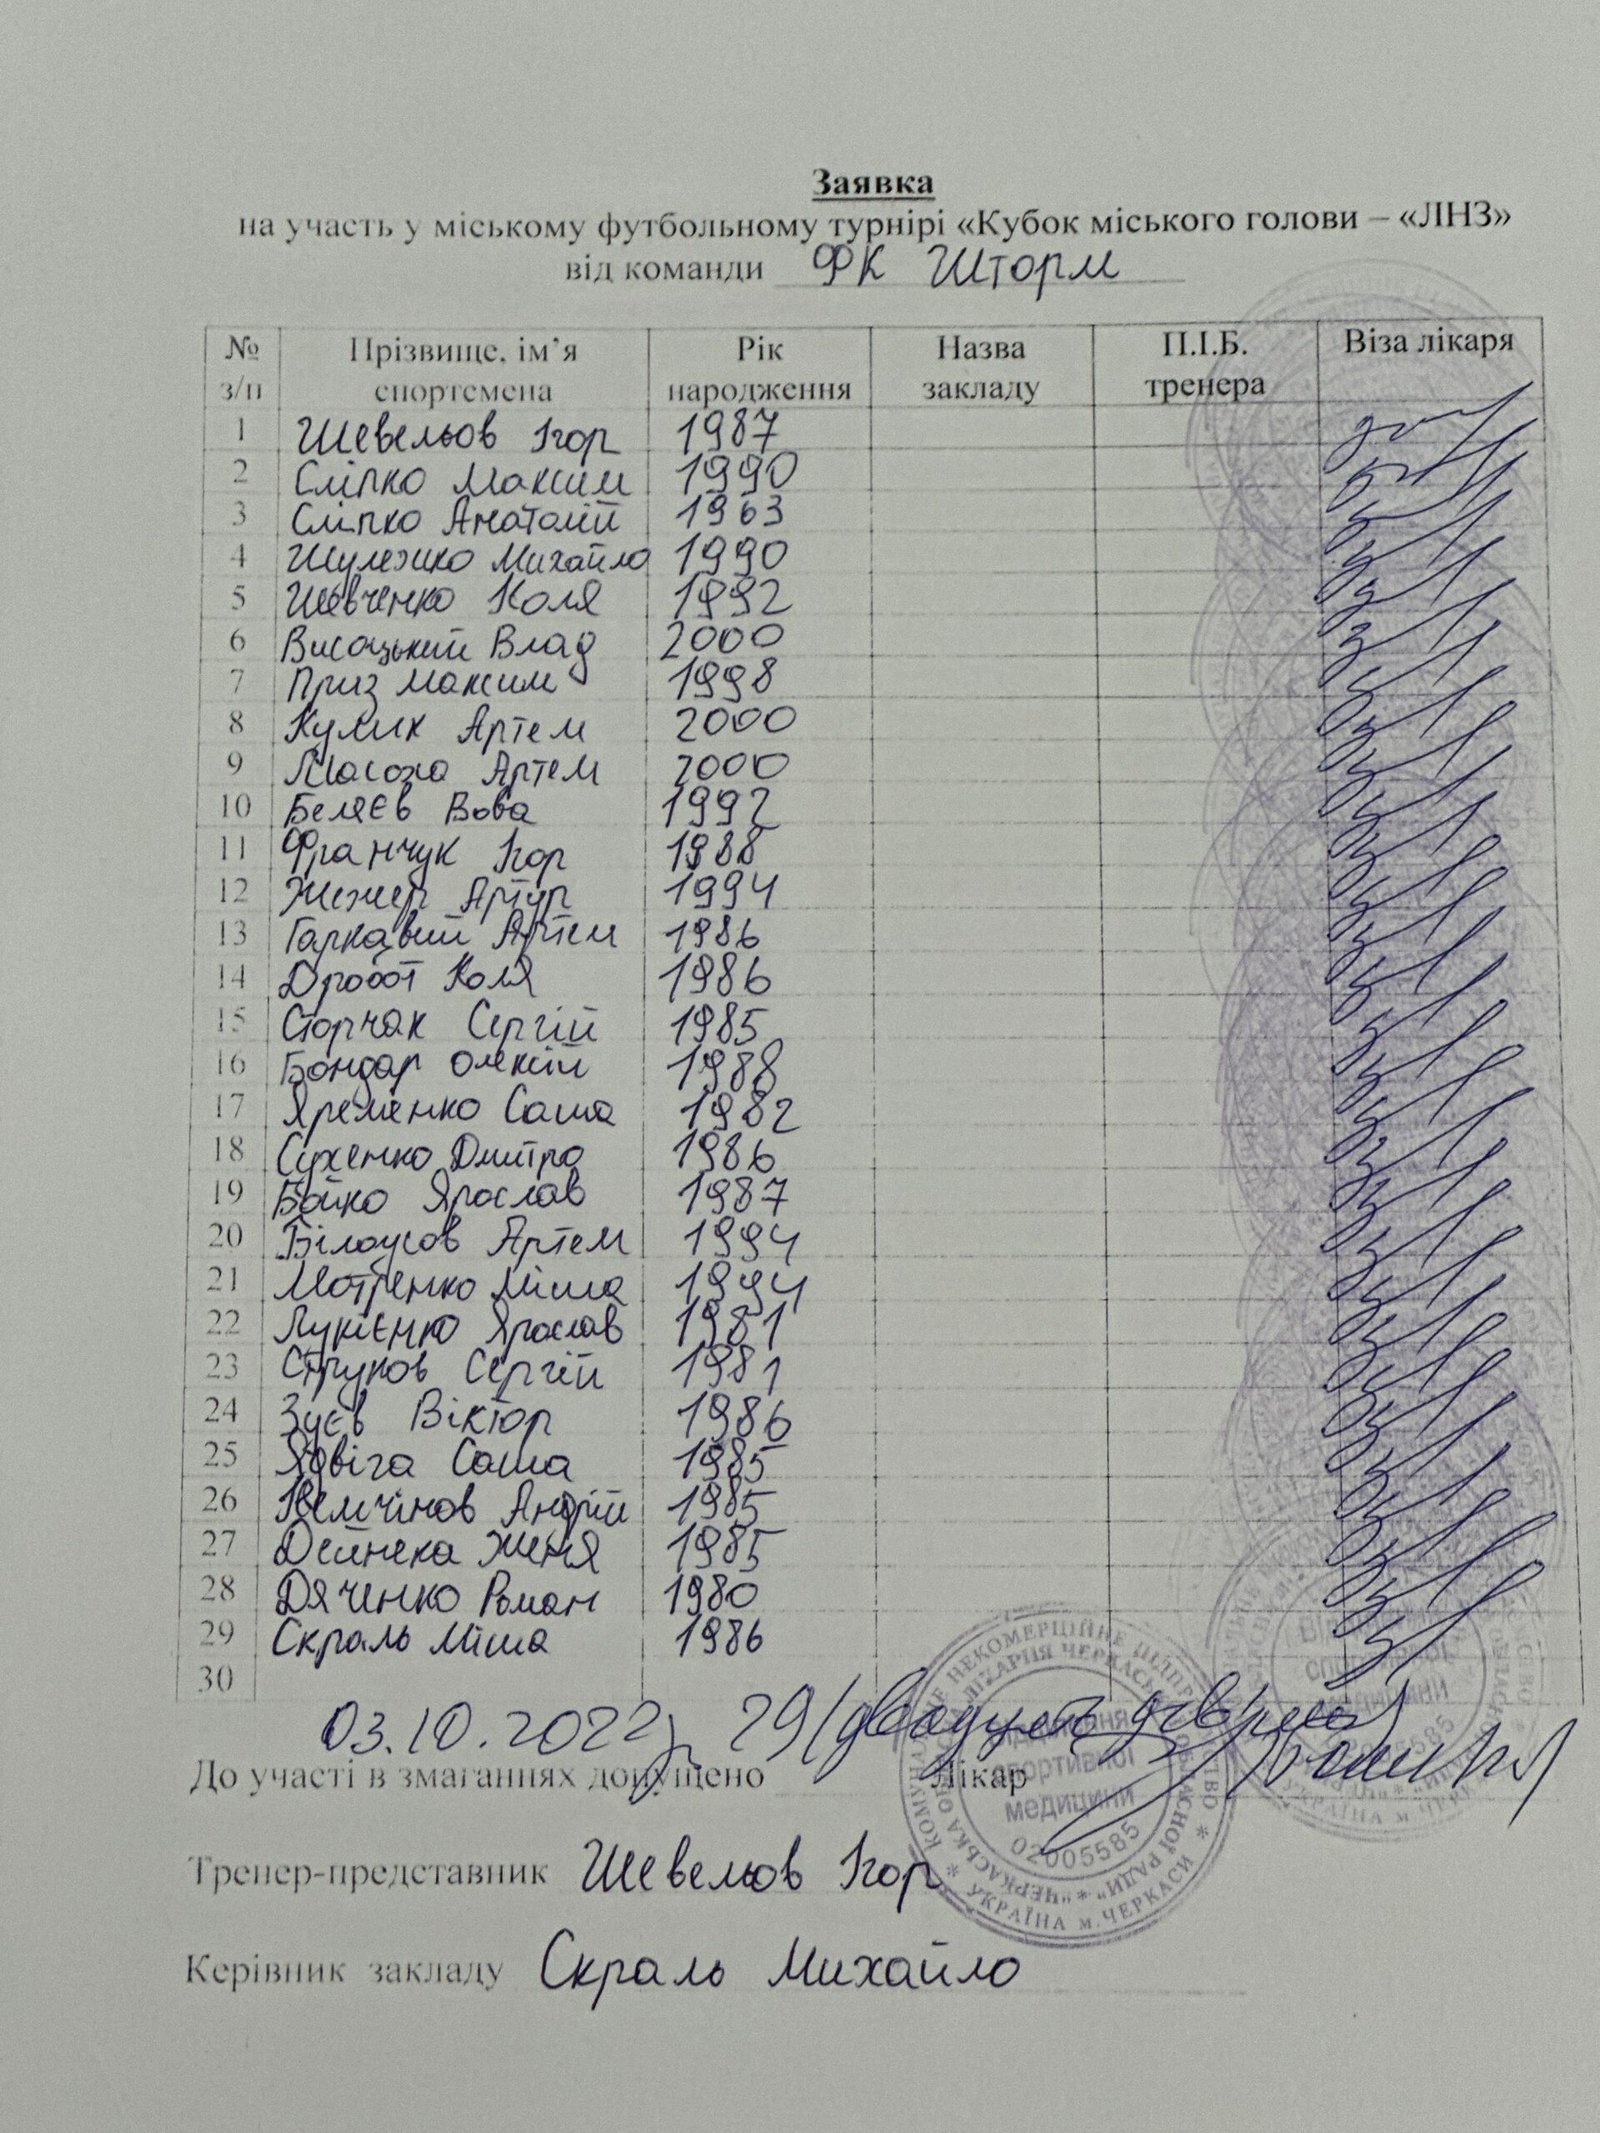 Заявка
на участь у міському футбольному турнірі «Кубок міського голови – «ЛНЗ»
від команди ФК Шторм
№ з/п Прізвище, ім’я спортсмена Рік народження Назва закладу П.І.Б. тренера Віза лікаря
1 Шевельов Ігор 1987
2 Сліпко Максим 1990
3 Сліпко Анатолій 1963
4 Шулежко Михайло 1990
5 Шевченко Коля 1992
6 Висоцький Влад 2000
7 Приз Максим 1998
8 Кулик Артем 2000
9 Масоха Артем 2000
10 Беляєв Вова 1992
11 Франчук Ігор 1988
12 Жежер Артур 1994
13 Гаркавий Артем 1986
14 Дробот Коля 1986
15 Сторчак Сергій 1985
16 Бондар Олексій 1988
17 Яременко Саша 1982
18 Сухенко Дмитро 1986
19 Бойко Ярослав 1987
20 Білоусов Артем 1994
21 Мотренко Міша 1994
22 Лукієнко Ярослав 1981
23 Струков Сергій 1981
24 Зуєв Віктор 1986
25 Ядвіга Саша 1985
26 Немчінов Андрій 1985
27 Дейнека Женя 1985
28 Дяченко Роман 1980
29 Скраль Міша 1986
30
03.10.2022р 29 (двадцять дев'ять)
До участі в змаганнях допущено Лікар
Тренер-представник Шевельов Ігор
Керівник закладу Скраль Михайло
спортивної
медицини
02005585
УКРАЇНА м.ЧЕРКАСИ